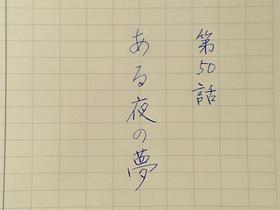 第50話
ある夜の夢